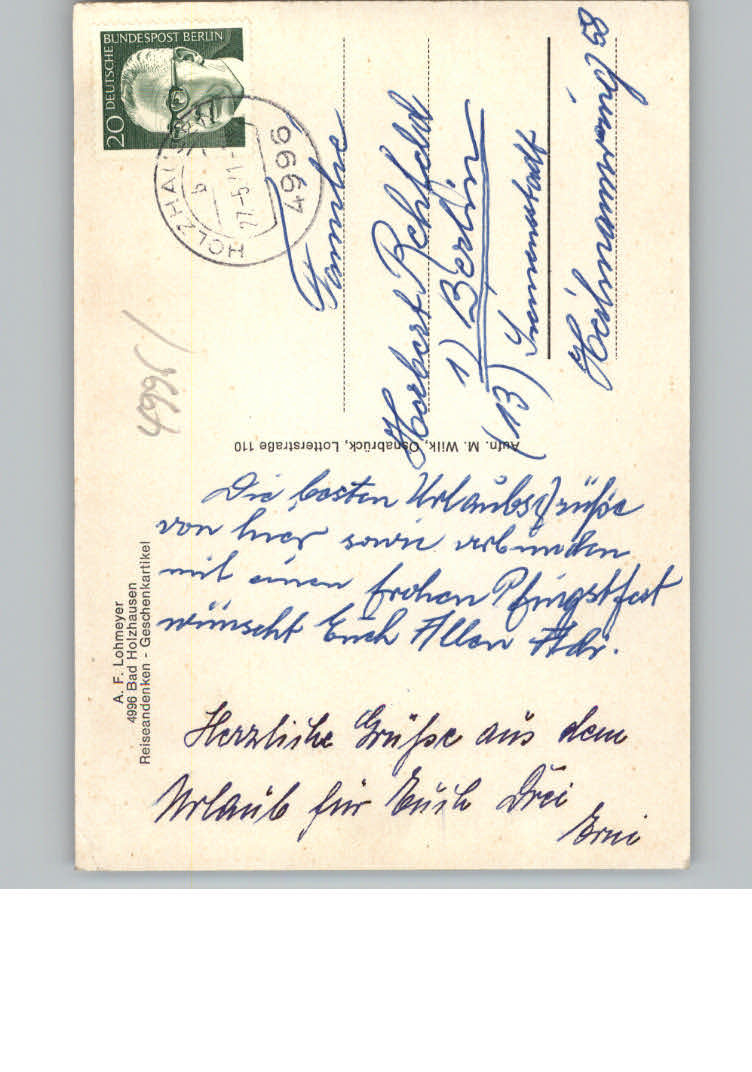 DEUTSCHE BUNDESPOST BERLIN
20
HOLZHAUSEN
27.-5.71
4996
4996/
Familie
Herbert Rehfeld
1) Berlin
(13) Siemensstadt
Heilmannring 58
Aufn. M. Wilk, Osnabrück, Lotterstraße 110
A. F. Lohmeyer
4996 Bad Holzhausen
Reiseandenken - Geschenkartikel
Die besten Urlaubsgrüße
von hier sowie verbunden
mit einen frohen Pfingstfest
wünscht Euch Allen Adr.
Herzliche Grüße aus dem
Urlaub für Euch Drei
Erni